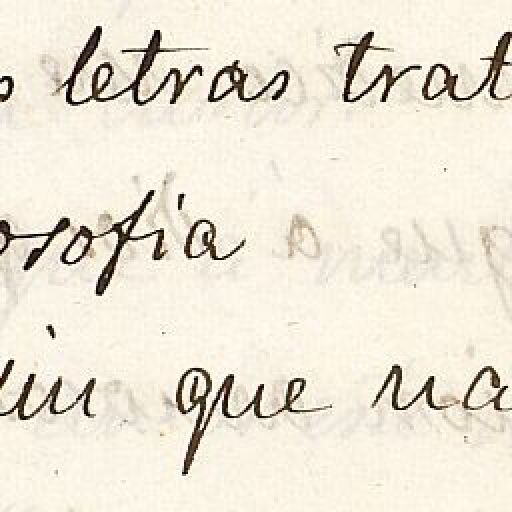 s letras trat
osofia
uin que na